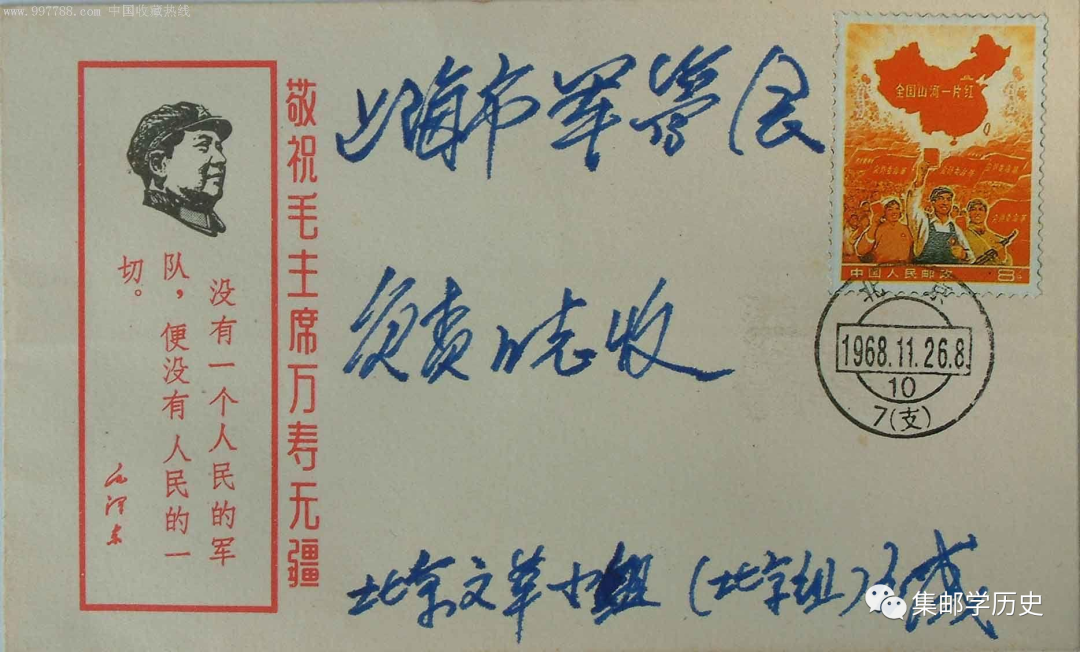 www.997788.com 中国收藏热线
敬祝毛主席万寿无疆
没有一个人民的军
队，便没有人民的一
切。
毛泽东
上海市军管会
负责同志收
北京文革小组(北京组)
全国山河一片红
中国人民邮政 8分
北京
1968.11.26.8
10
7(支)
集邮学历史